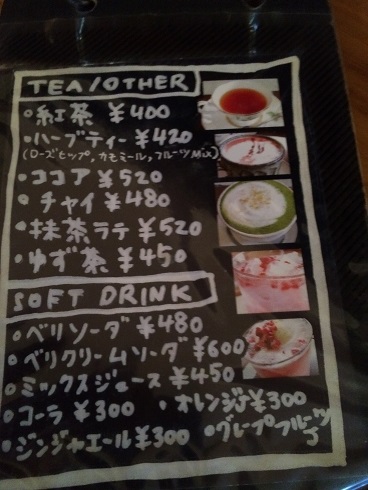 TEA/OTHER
・紅茶 ¥400
・ハーブティー ¥420
(ローズヒップ,カモミール,フルーツMix)
・ココア ¥520
・チャイ ¥480
・抹茶ラテ ¥520
・ゆず茶 ¥450
SOFT DRINK
・ベリソーダ ¥480
・ベリクリームソーダ ¥600
・ミックスジュース ¥450
・コーラ ¥300 ・オレンジJ ¥300
・ジンジャエール ¥300 ・グレープフルーツ
J